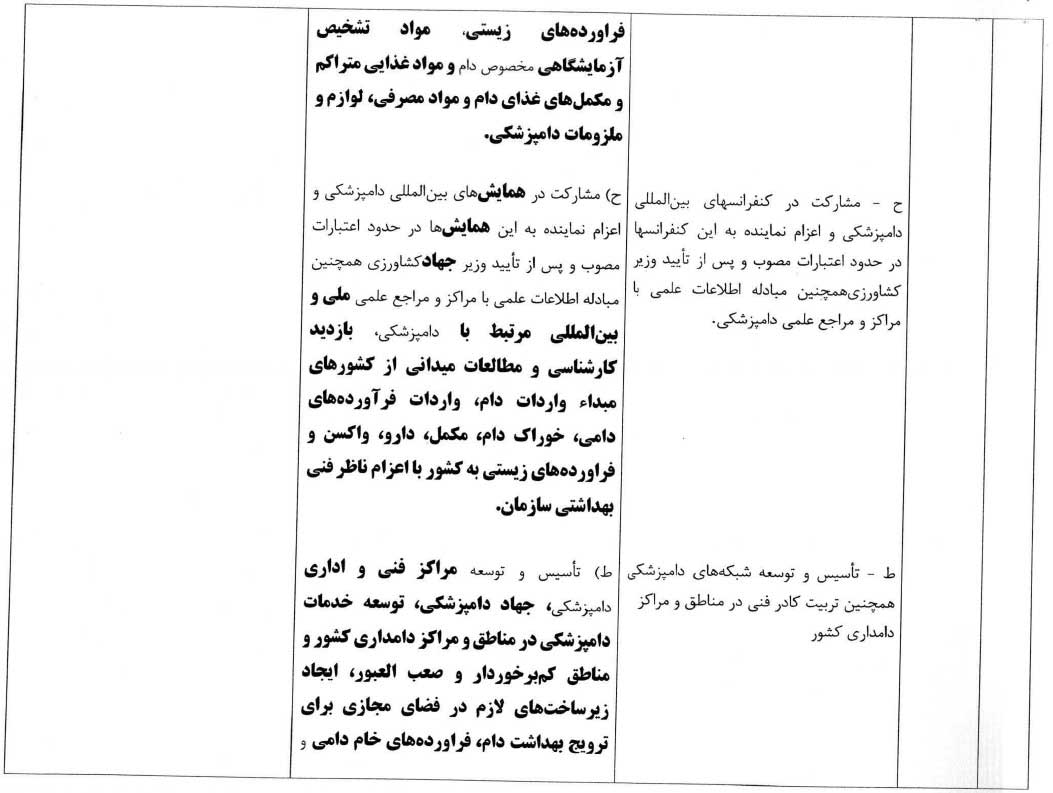 ح - مشارکت در کنفرانسهای بین‌المللی
دامپزشکی و اعزام نماینده به این کنفرانسها
در حدود اعتبارات مصوب و پس از تأیید وزیر
کشاورزی‌همچنین مبادله اطلاعات علمی با
مراکز و مراجع علمی دامپزشکی.
ط - تأسیس و توسعه شبکه‌های دامپزشکی
همچنین تربیت کادر فنی در مناطق و مراکز
دامداری کشور
فراورده‌های زیستی، مواد تشخیص
آزمایشگاهی مخصوص دام و مواد غذایی متراکم
و مکمل‌های غذای دام و مواد مصرفی، لوازم و
ملزومات دامپزشکی.
ح) مشارکت در همایش‌های بین‌المللی دامپزشکی و
اعزام نماینده به این همایش‌ها در حدود اعتبارات
مصوب و پس از تأیید وزیر جهادکشاورزی همچنین
مبادله اطلاعات علمی با مراکز و مراجع علمی ملی و
بین‌المللی مرتبط با دامپزشکی، بازدید
کارشناسی و مطالعات میدانی از کشورهای
مبداء واردات دام، واردات فرآورده‌های
دامی، خوراک دام، مکمل، دارو، واکسن و
فراورده‌های زیستی به کشور با اعزام ناظر فنی
بهداشتی سازمان.
ط) تأسیس و توسعه مراکز فنی و اداری
دامپزشکی، جهاد دامپزشکی، توسعه خدمات
دامپزشکی در مناطق و مراکز دامداری کشور و
مناطق کم‌برخوردار و صعب العبور، ایجاد
زیرساخت‌های لازم در فضای مجازی برای
ترویج بهداشت دام، فراورده‌های خام دامی و